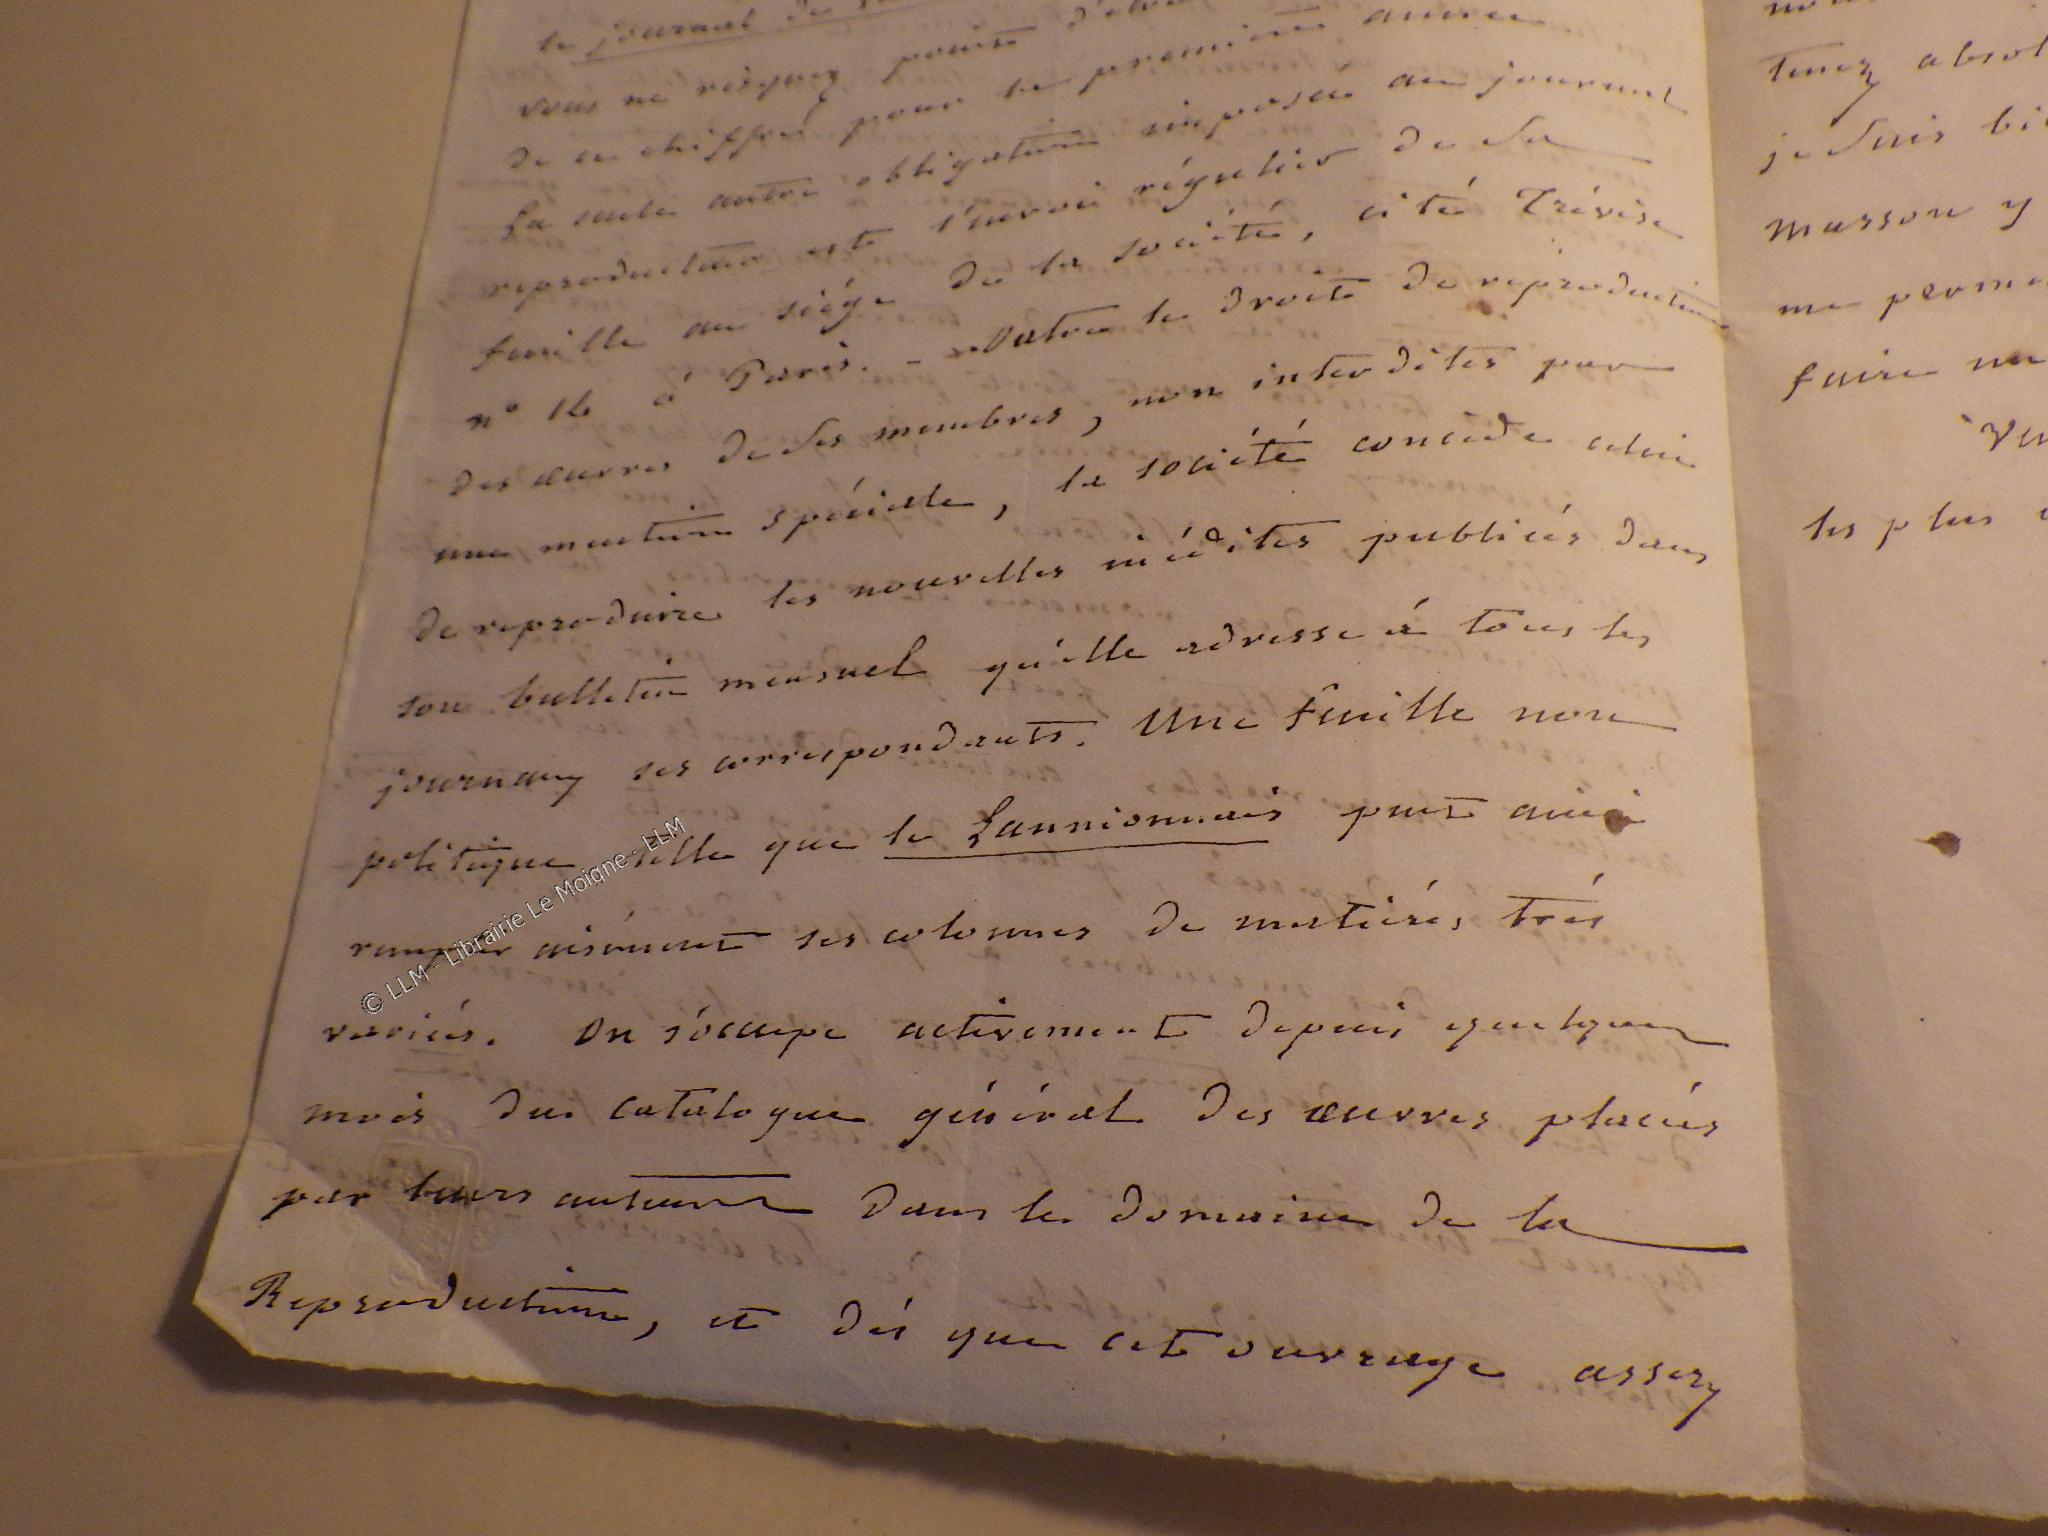 le journal de
vous ne risquez point d'être
de ce chiffre pour la première année
La seule autre obligation imposée au journal
reproducteur est l'envoi régulier de sa
feuille au siége de la société, cité Trévise
n° 14 à Paris. - Outre le droit de reproduction
des œuvres de ses membres, non interdites par
une mention spéciale, la société concède celui
de reproduire les nouvelles inédites publiées dans
son bulletin mensuel qu'elle adresse à tous les
journaux ses correspondants. Une feuille non
politique telle que le Lannionnais peut ainsi
remplir aisément ses colonnes de matières très
variées. On s'occupe activement depuis quelques
mois du catalogue général des œuvres placées
par leurs auteurs dans le domaine de la
Reproduction, et dès que cet ouvrage assez
tenez absol
je suis bi
Masson y
me perme
faire un
les plus
© LLM - Librairie Le Moigne - LLM